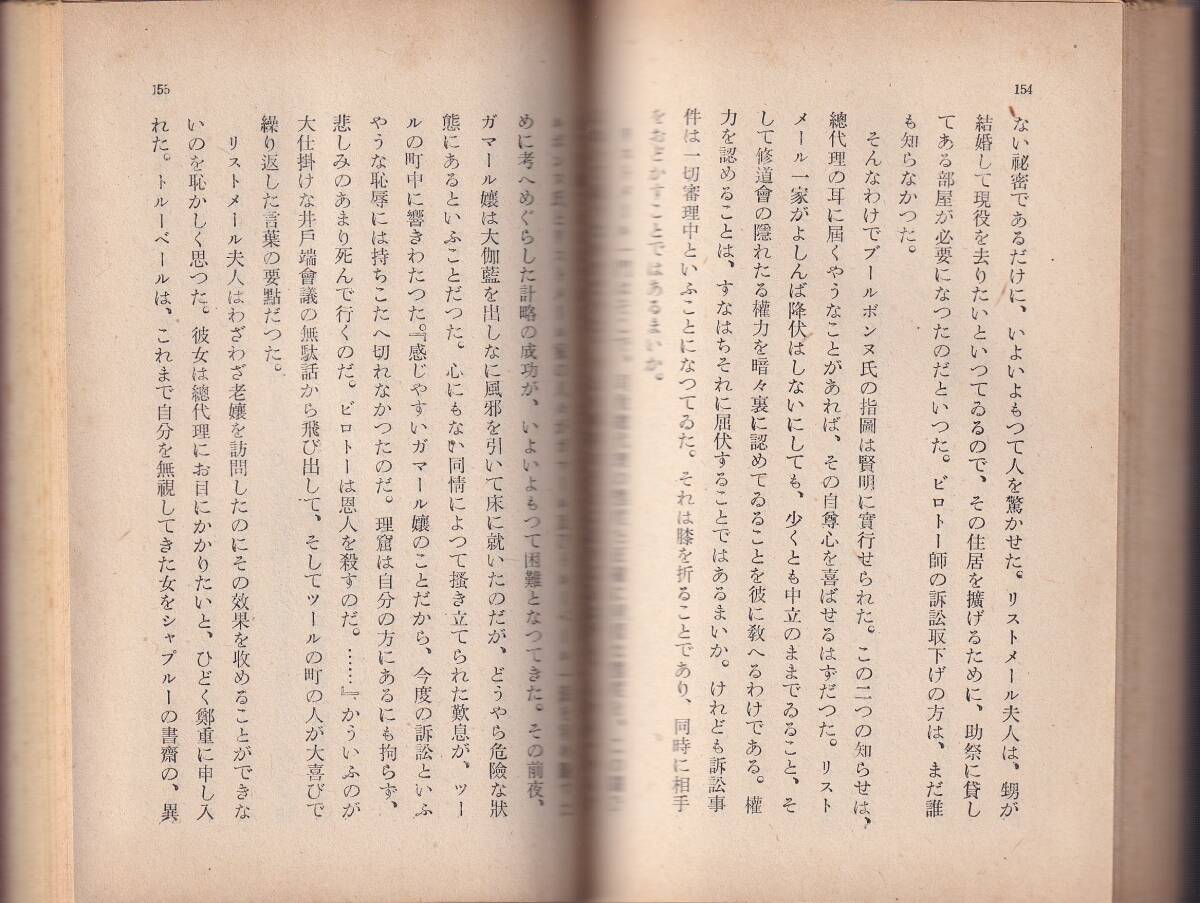 154
ない祕密であるだけに、いよいよもつて人を驚かせた。リストメール夫人は、甥が
結婚して現役を去りたいといつてゐるので、その住居を擴げるために、助祭に貸し
てある部屋が必要になつたのだといつた。ビロトー師の訴訟取下げの方は、まだ誰
も知らなかつた。
そんなわけでブールボンヌ氏の指圖は賢明に實行せられた。この二つの知らせは、
總代理の耳に屆くやうなことがあれば、その自尊心を喜ばせるはずだつた。リスト
メール一家がよしんば降伏はしないにしても、少くとも中立のままでゐること、そ
して修道會の隱れたる權力を暗々裏に認めてゐることを彼に敎へるわけである。權
力を認めることは、すなはちそれに屈伏することではあるまいか。けれども訴訟事
件は一切審理中といふことになつてゐた。それは膝を折ることであり、同時に相手
をおどかすことではあるまいか。
155
めに考へめぐらした計略の成功が、いよいよもつて困難となつてきた。その前夜、
ガマール孃は大伽藍を出しなに風邪を引いて床に就いたのだが、どうやら危險な狀
態にあるといふことだつた。心にもない同情によつて搔き立てられた歎息が、ツー
ルの町中に響きわたつた。『感じやすいガマール孃のことだから、今度の訴訟といふ
やうな恥辱には持ちこたへ切れなかつたのだ。理窟は自分の方にあるにも拘らず、
悲しみのあまり死んで行くのだ。ビロトーは恩人を殺すのだ。……』かういふのが
大仕掛けな井戸端會議の無駄話から飛び出して、そしてツールの町の人が大喜びで
繰り返した言葉の要點だつた。
リストメール夫人はわざわざ老孃を訪問したのにその效果を收めることができな
いのを恥かしく思つた。彼女は總代理にお目にかかりたいと、ひどく鄭重に申し入
れた。トルーベールは、これまで自分を無視してきた女をシャプルーの書齋の、異